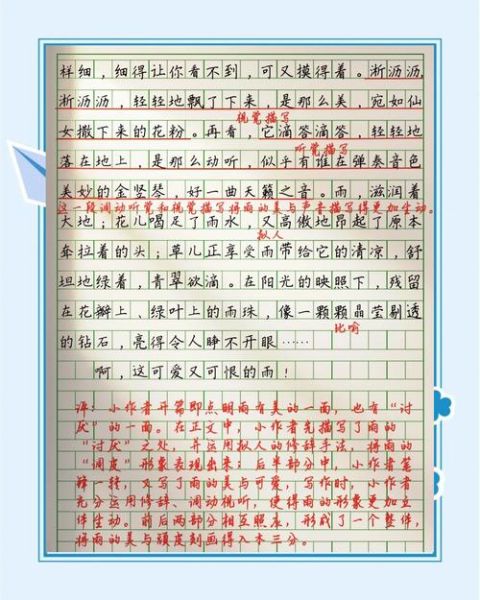 样细，细得让你看不到，可又摸得着。淅沥沥，
淅沥沥，轻轻地飘了下来，是那么美，宛如仙
视觉描写
女撒下来的花粉。再看，它滴答滴答，轻轻地
听觉描写
落在地上，是那么动听，似乎有谁在弹奏音色
美妙的金竖琴，好一曲天籁之音。雨，滋润着
这一段调动听觉和视觉描写将雨的美与声音描写得更加生动。
大地；花儿喝足了雨水，又高傲地昂起了原本
拟人
耷拉着的头；草儿正享受雨带给它的清凉，舒
坦地绿着，青翠欲滴。在阳光的映照下，残留
在花瓣上、绿叶上的雨珠，像一颗颗晶莹剔透
比喻
的钻石，亮得令人睁不开眼……
啊，这可爱又可恨的雨！
评：小作者开篇即点明雨有美的一面，也有“讨
厌”的一面。在正文中，小作者先描写了雨的
“讨厌”之处，并运用拟人的修辞手法，将雨的
“调皮”形象表现出来；后半部分中，小作者笔
锋一转，又写了雨的美与可爱，写作时，小作者
充分运用修辞、调动视听，使得雨的形象更加立
体生动。前后两部分相互照应，形成了一个整体，
将雨的美与顽皮刻画得入木三分。